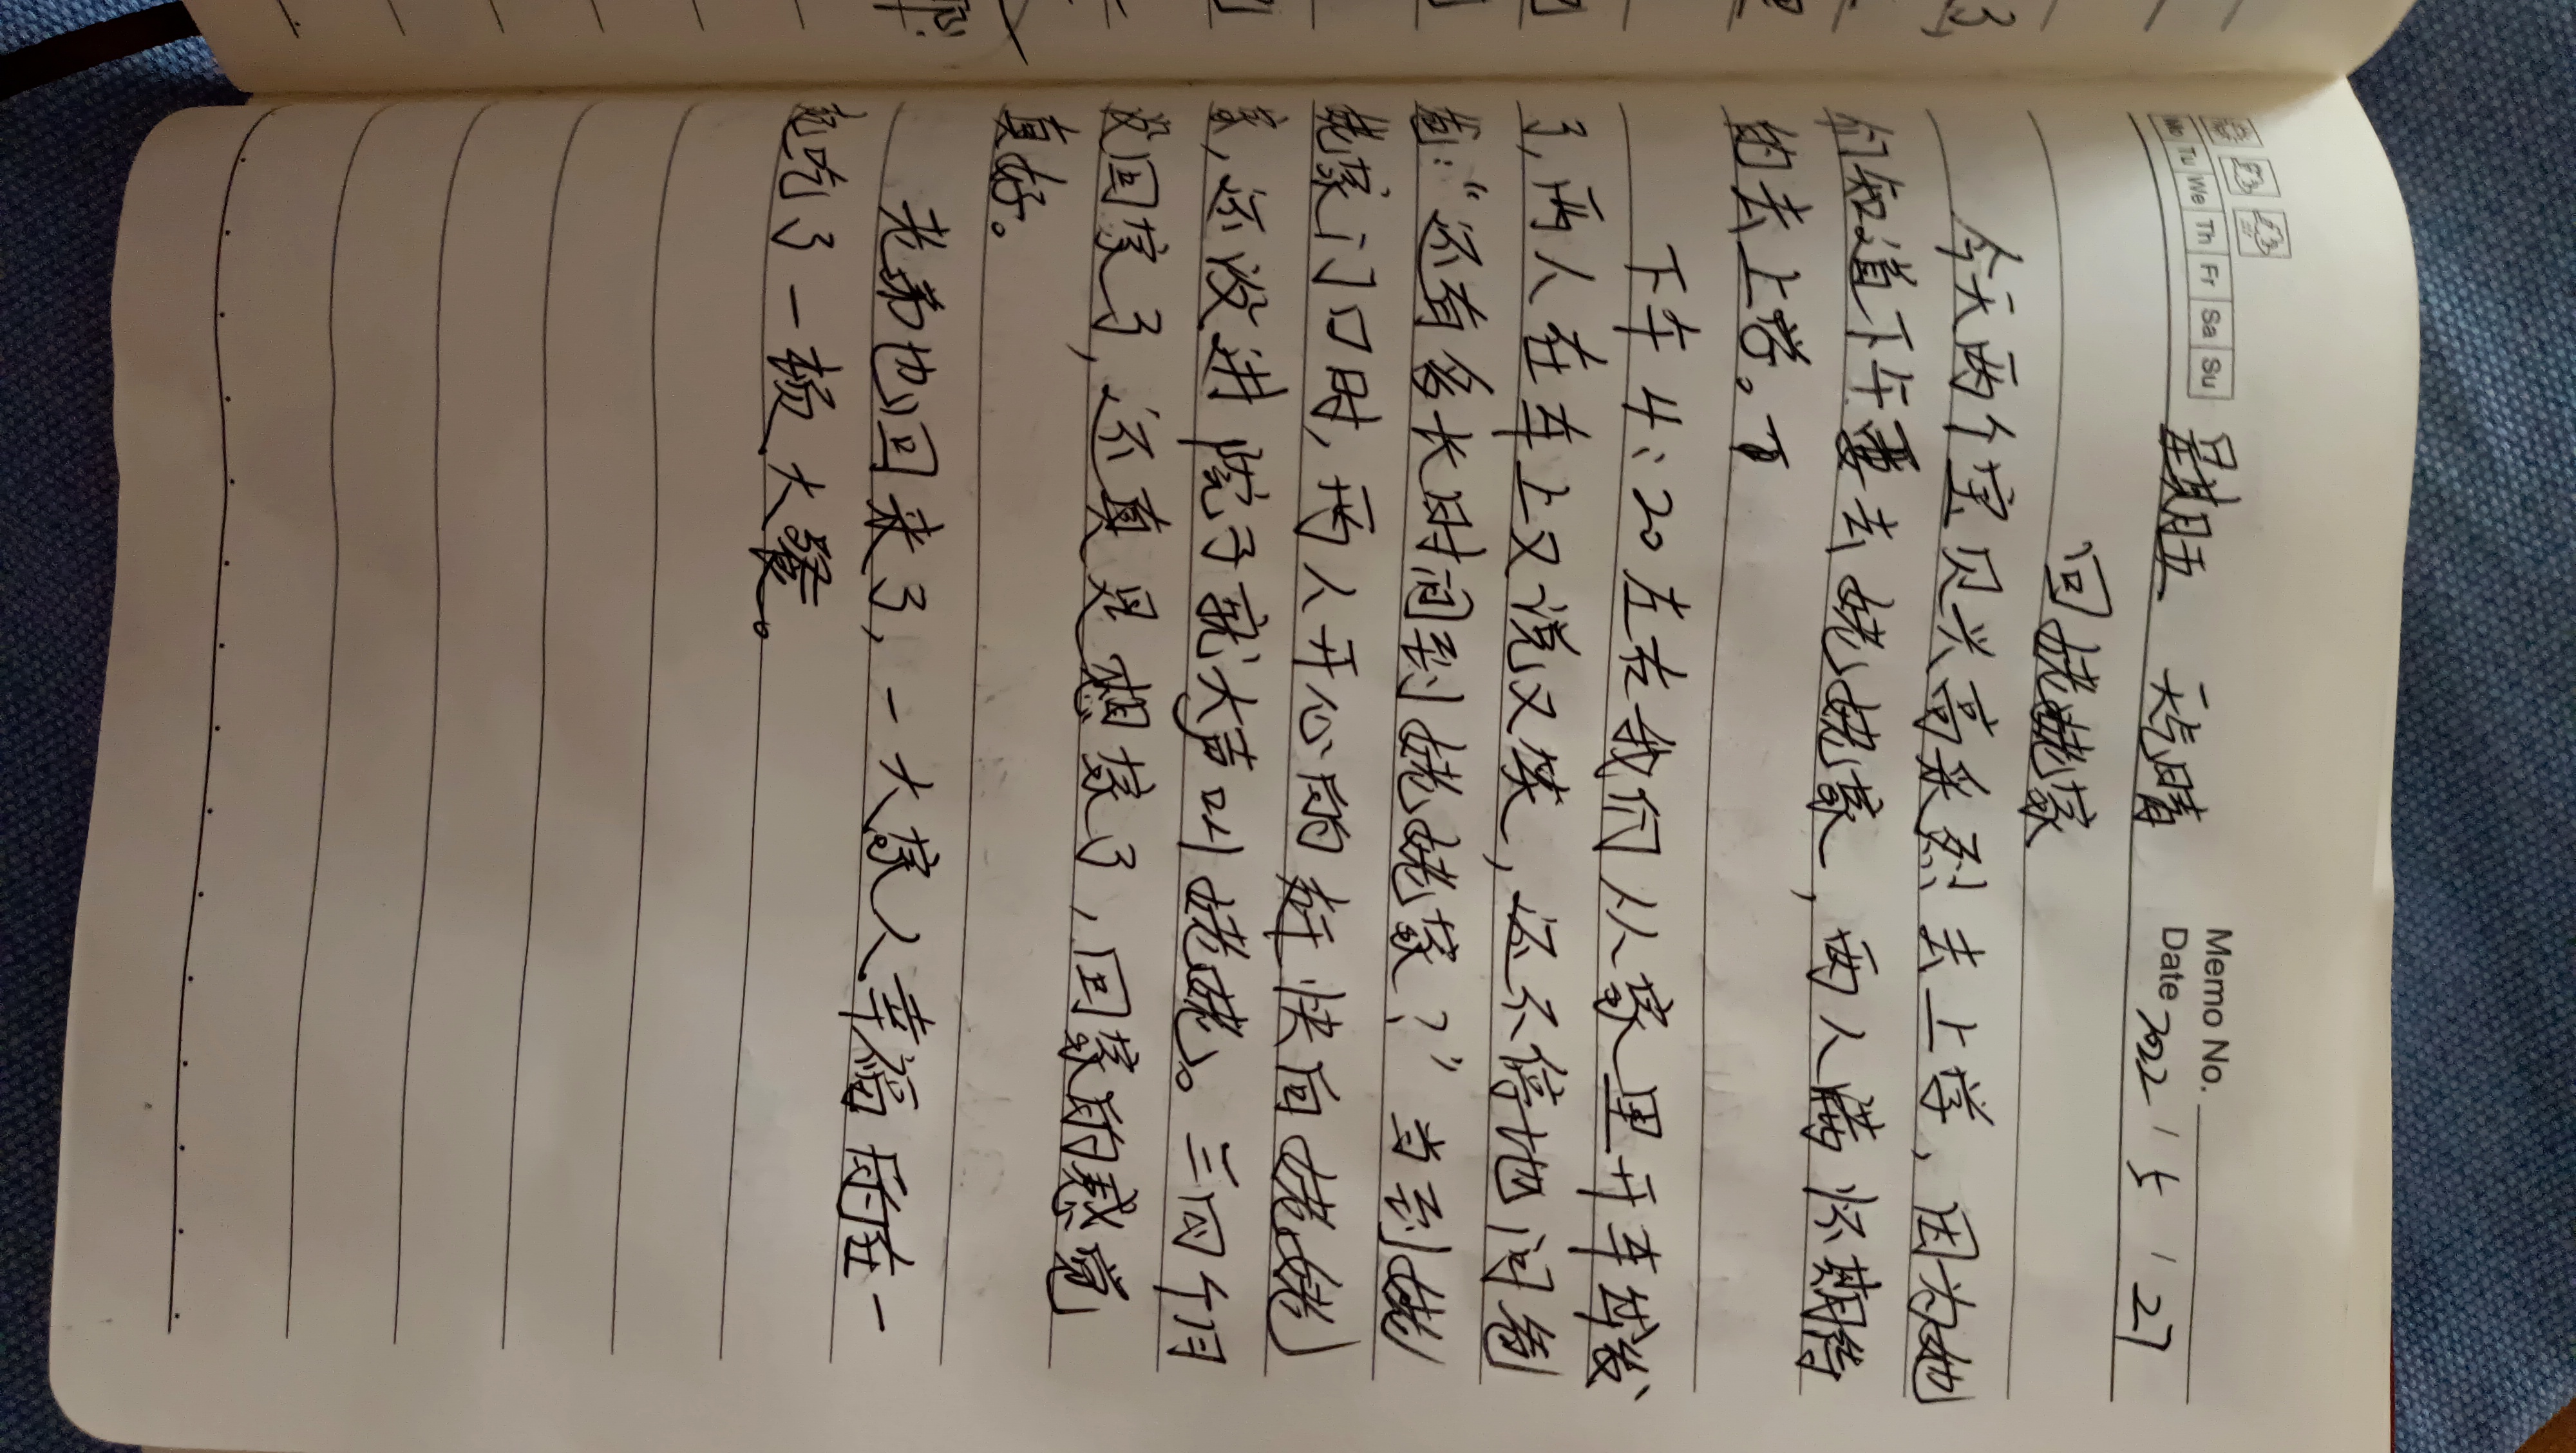 Memo No.
Mo Tu We Th Fr Sa Su 星期五 天气晴 Date 2022 / 5 / 27
回姥姥家
今天两个宝贝兴高采烈去上学，因为她
们知道下午要去姥姥家，两人满怀期待
的去上学。下
下午4:20左右我们从家里开车出发
了，两人在车上又说又笑，还不停地问爸
爸：“还有多长时间到姥姥家？”当到姥
姥家门口时，两人开心的赶快向姥姥
家，还没进院子就大声叫姥姥。三四个月
没回家了，还真是想家了，回家的感觉
真好。
老弟也回来了，一大家人幸福的在一
起吃了一顿大餐。